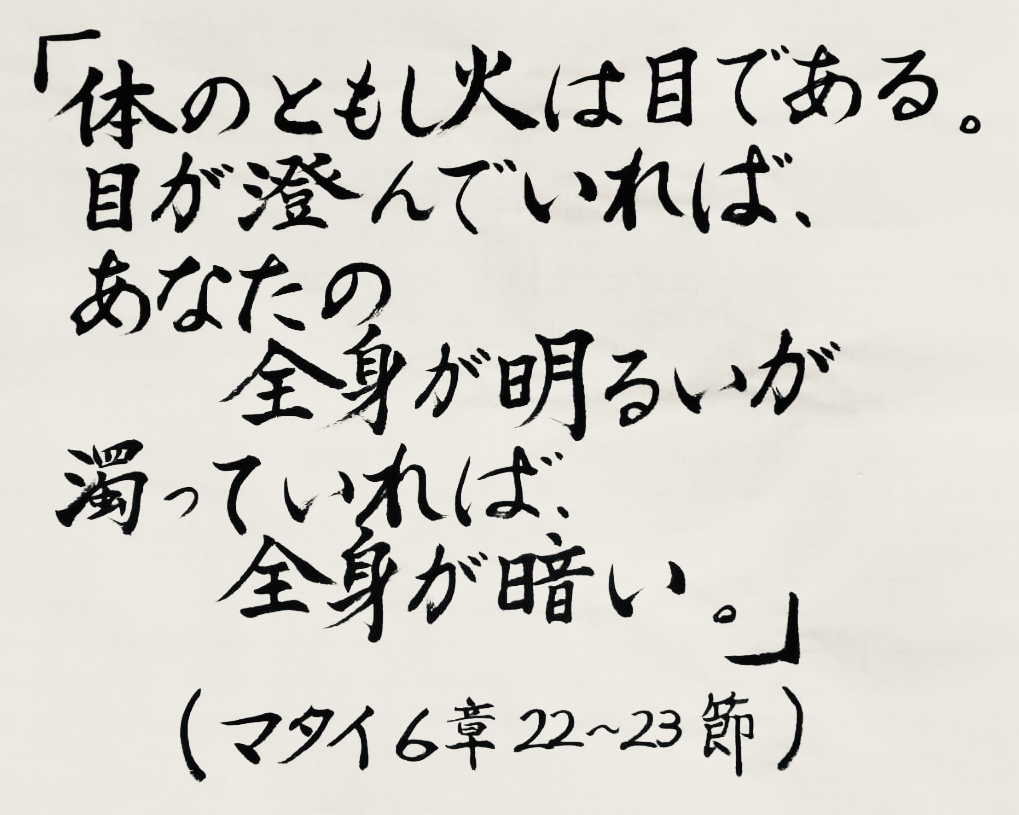 「体のともし火は目である。
目が澄んでいれば、
あなたの
全身が明るいが
濁っていれば、
全身が暗い。」
(マタイ6章22~23節)